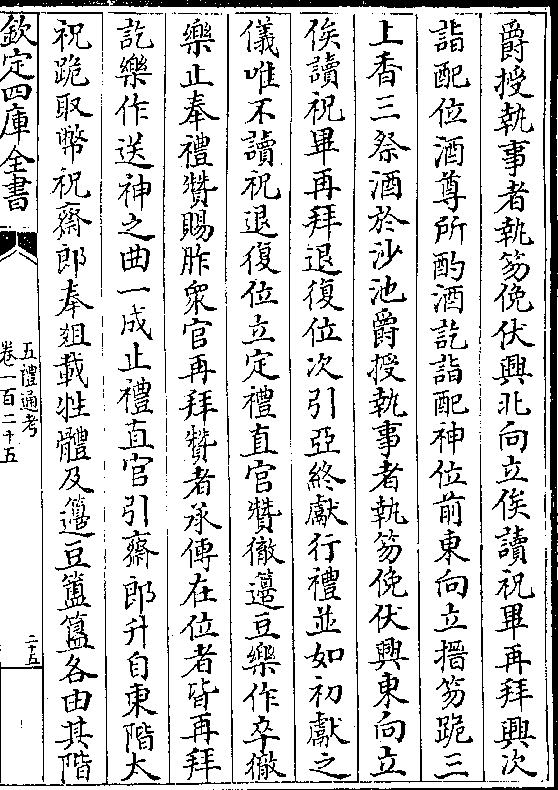 爵授執事者執笏俛伏興北向立俟讀祝畢再拜興次
詣配位酒尊所酌酒訖詣配神位前東向立搢笏跪三
上香三祭酒於沙池爵授執事者執笏俛伏興東向立
俟讀祝畢再拜退復位次引亞終獻行禮並如初獻之
儀唯不讀祝退復位立定禮直官贊徹籩豆樂作卒徹
樂止奉禮贊賜胙衆官再拜贊者承傳在位者皆再拜
訖樂作送神之曲一成止禮直官引齋郎升自東階太
祝跪取幣祝齋郎奉俎載牲體及籩豆簠簋各由其階
欽定四庫全書
五禮通考
卷一百二十五
二五